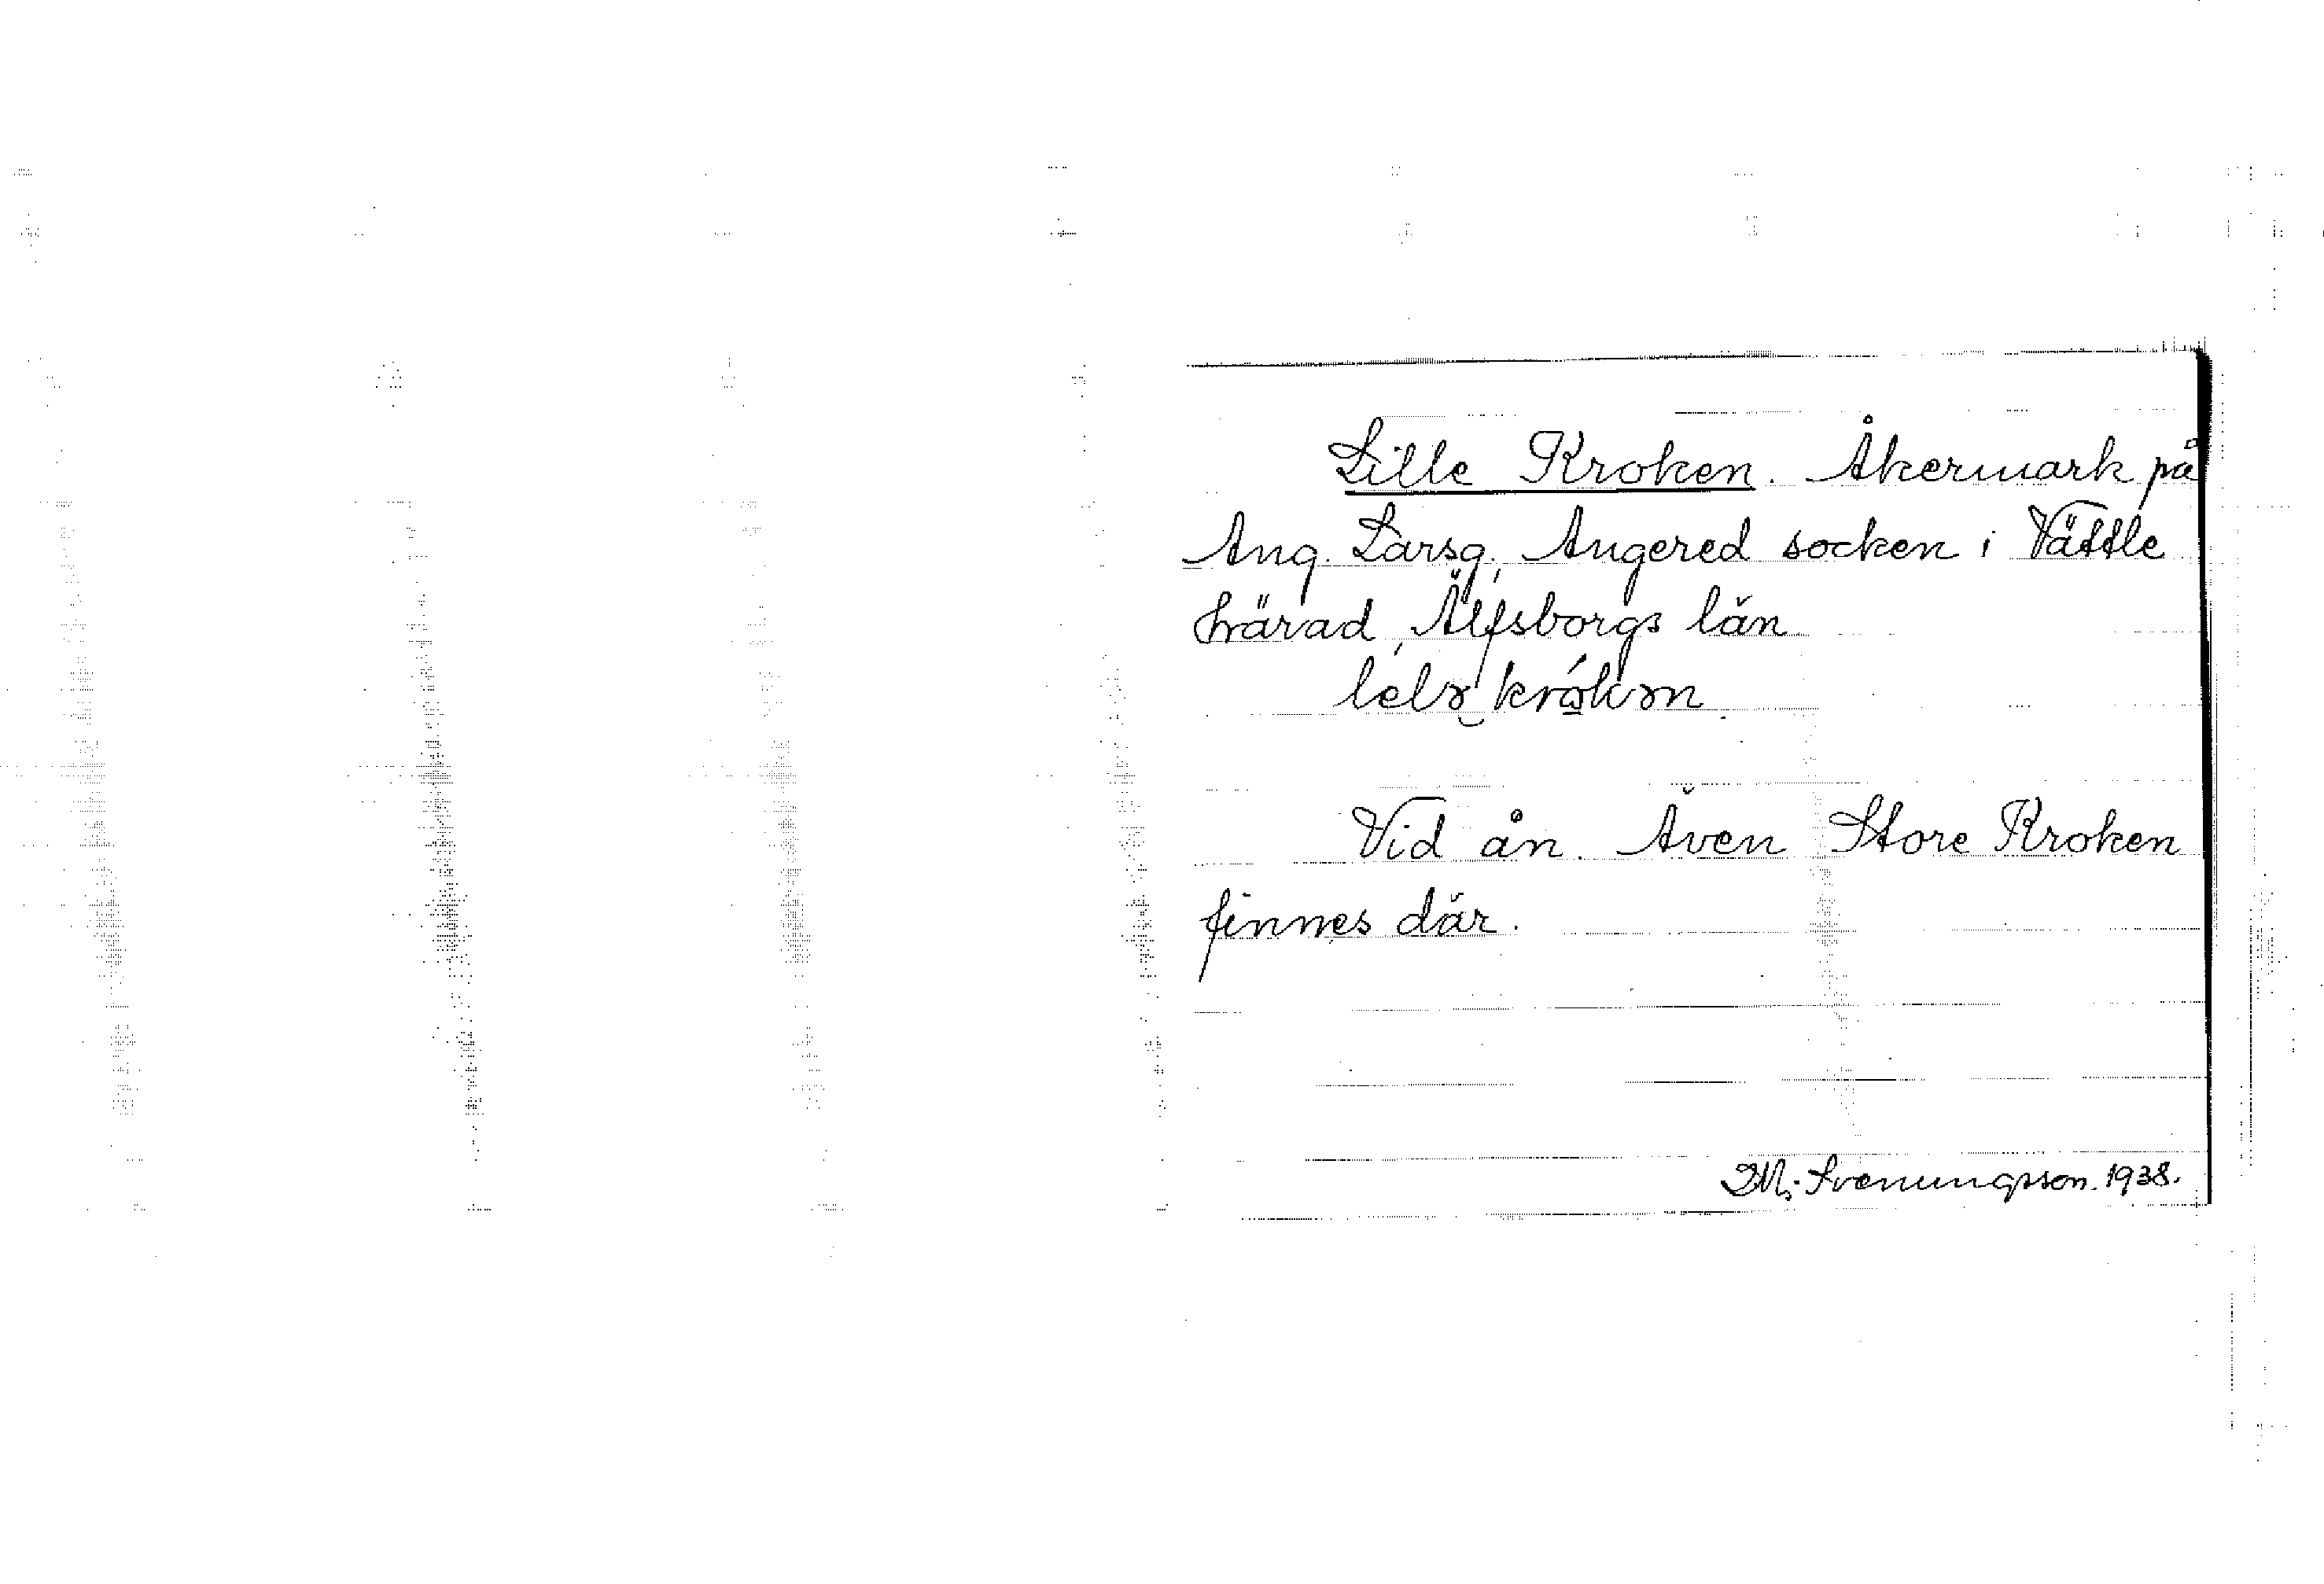 Lille Kroken. Åkermark på
Ang. Larsg., Angered socken i Vättle
härad, Älfsborgs län
Vid ån. Även Store Kroken
finnes där.
Svenungsson. 1938.